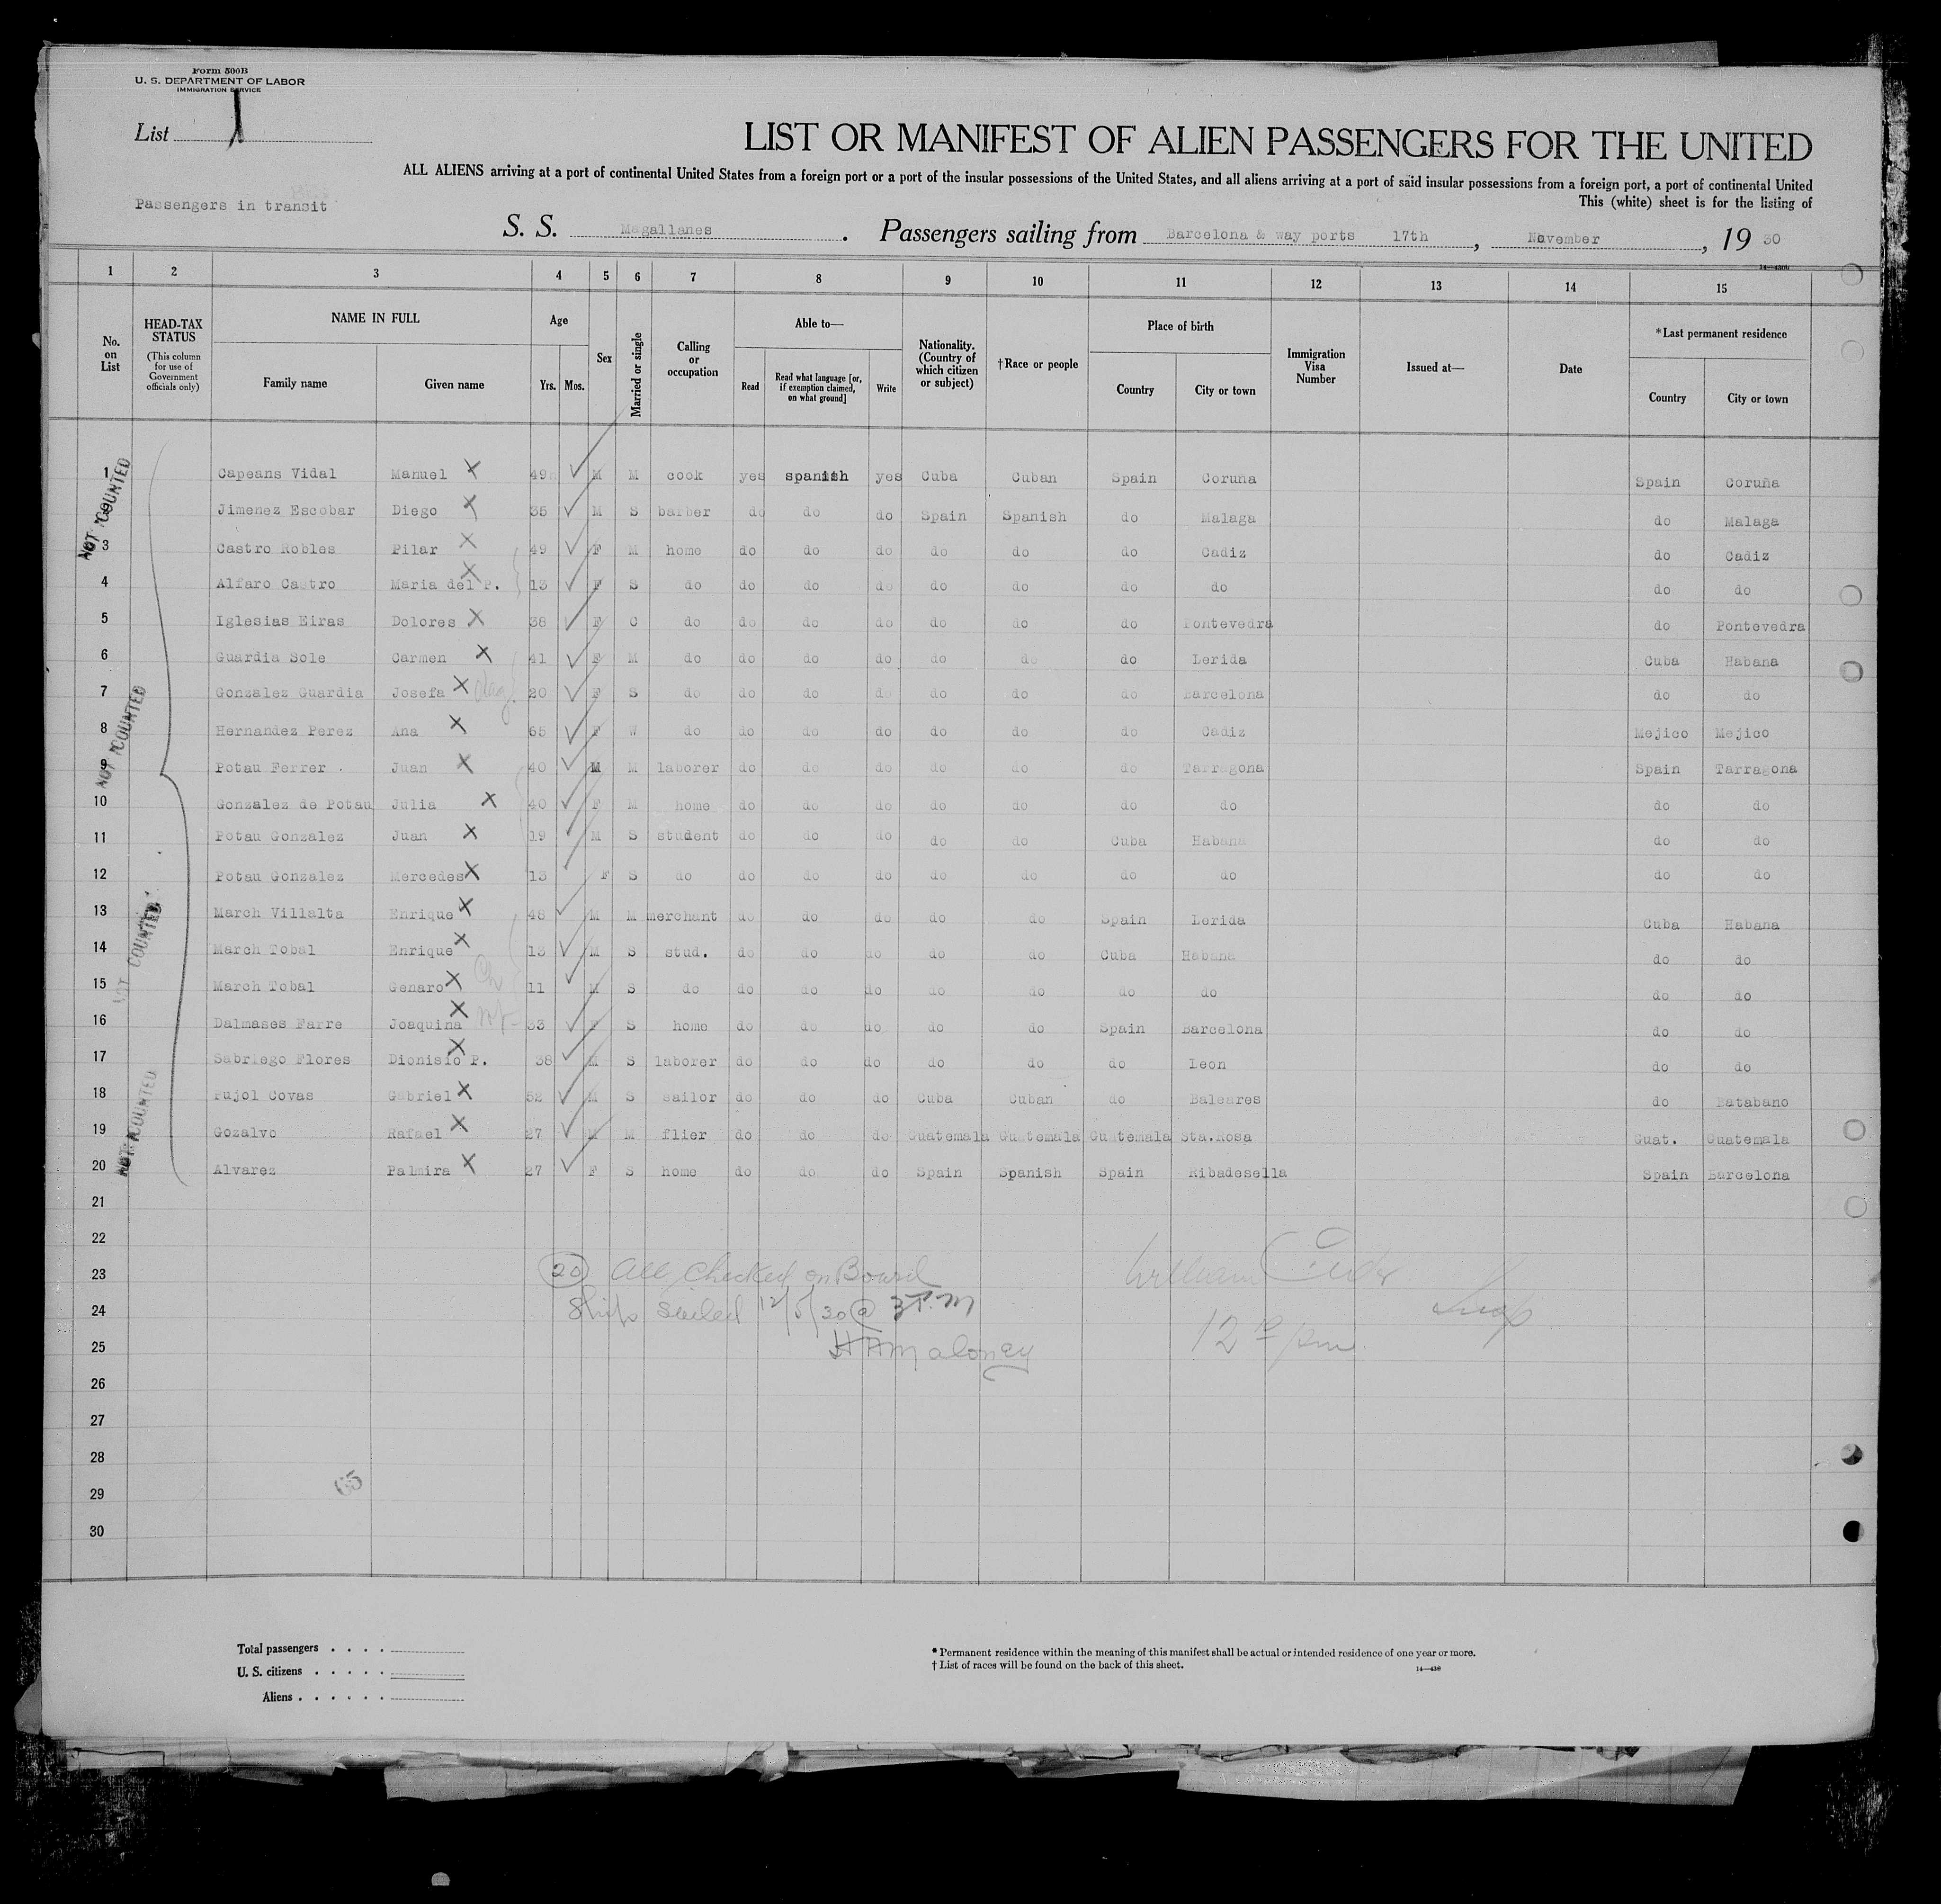 Form 500B
U. S. DEPARTMENT OF LABOR
IMMIGRATION SERVICE
List 1
LIST OR MANIFEST OF ALIEN PASSENGERS FOR THE UNITED
ALL ALIENS arriving at a port of continental United States from a foreign port or a port of the insular possessions of the United States, and all aliens arriving at a port of said insular possessions from a foreign port, a port of continental United
This (white) sheet is for the listing of
Passengers in transit
S. S. Magallanes. Passengers sailing from Barcelona & way ports 17th, November, 19 30
1 2 3 4 5 6 7 8 9 10 11 12 13 14 15
No. on List
HEAD-TAX STATUS (This column for use of Government officials only)
NAME IN FULL Family name Given name
Age Yrs. Mos.
Sex
Married or single
Calling or occupation
Able to— Read Read what language [or, if exemption claimed, on what ground] Write
Nationality. (Country of which citizen or subject)
†Race or people
Place of birth Country City or town
Immigration Visa Number
Issued at—
Date
*Last permanent residence Country City or town
1 Capeans Vidal Manuel 49 M M cook yes spanish yes Cuba Cuban Spain Coruña Spain Coruña
Jimenez Escobar Diego 35 M S barber do do do Spain Spanish do Malaga do Malaga
3 Castro Robles Pilar 49 F M home do do do do do do Cadiz do Cadiz
4 Alfaro Castro Maria del P. 13 F S do do do do do do do do do do
5 Iglesias Eiras Dolores 38 F C do do do do do do do Pontevedra do Pontevedra
6 Guardia Sole Carmen 41 F M do do do do do do do Lerida Cuba Habana
7 Gonzalez Guardia Josefa 20 F S do do do do do do do Barcelona do do
8 Hernandez Perez Ana 65 F W do do do do do do do Cadiz Mejico Mejico
9 Potau Ferrer Juan 40 M M laborer do do do do do do Tarragona Spain Tarragona
10 Gonzalez de Potau Julia 40 F M home do do do do do do do do do
11 Potau Gonzalez Juan 19 M S student do do do do do Cuba Habana do do
12 Potau Gonzalez Mercedes 13 F S do do do do do do do do do do
13 March Villalta Enrique 48 M M merchant do do do do do Spain Lerida Cuba Habana
14 March Tobal Enrique 13 M S stud. do do do do do Cuba Habana do do
15 March Tobal Genaro 11 M S do do do do do do do do do do
16 Dalmases Farre Joaquina 33 F S home do do do do do Spain Barcelona do do
17 Sabriego Flores Dionisio P. 38 M S laborer do do do do do do Leon do do
18 Pujol Covas Gabriel 52 M S sailor do do do Cuba Cuban do Baleares do Batabano
19 Gozalvo Rafael 27 M M flier do do do Guatemala Guatemala Guatemala Sta.Rosa Guat. Guatemala
20 Alvarez Palmira 27 F S home do do do Spain Spanish Spain Ribadesella Spain Barcelona
NOT COUNTED
NOT COUNTED
NOT COUNTED
NOT COUNTED
21
22
23 20 All checked on Board William
24 Ship sailed 12/5/30 @ 3 P.M
25 HAMaloney 12 10 pm.
26
27
28
29 65
30
Total passengers . . . .
U. S. citizens . . . . .
Aliens . . . . . .
* Permanent residence within the meaning of this manifest shall be actual or intended residence of one year or more.
† List of races will be found on the back of this sheet.